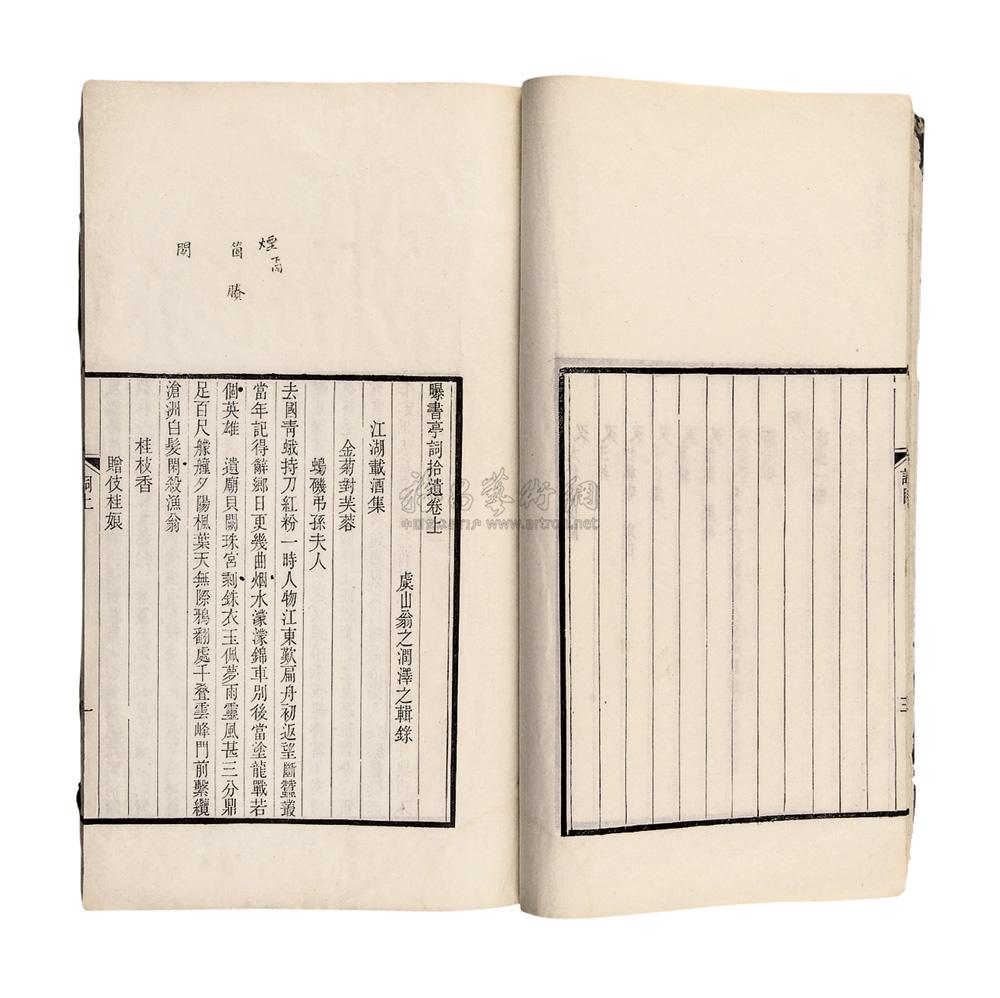 曝書亭詞拾遺卷上
虞山翁之潤澤之輯錄
江湖載酒集
金菊對芙蓉
蟂磯弔孫夫人
去國靑蛾持刀紅粉一時人物江東歎扁舟初返望斷蠶叢
當年記得辭鄉日更幾曲烟水濛濛錦車別後當塗龍戰若
個英雄　遺廟貝闕珠宮剩銖衣玉佩夢雨靈風甚三分鼎
足百尺艨艟夕陽楓葉天無際鴉翻處千叠雲峰門前繫纜
滄洲白髮閑殺漁翁
桂枝香
贈伎桂娘
詞上
一
煙
下同
箇
賸
閒
三
中国艺术品门户
www.artron.net